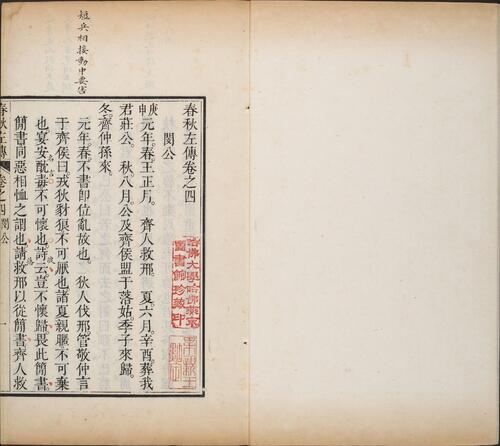 春秋左傳卷之四
閔公
庚申元年春王正月 齊人救邢 夏六月辛酉葬我
君莊公 秋八月公及齊侯盟于落姑季子來歸
冬齊仲孫來
元年春不書即位亂故也 狄人伐邢管敬仲言
于齊侯曰戎狄豺狼不可厭也諸夏親暱不可棄
也宴安酖毒不可懷也詩云豈不懷歸畏此簡書
簡書同惡相恤之謂也請救邢以從簡書齊人救
春秋左傳 卷之四 閔公 一
短兵相接動中要害
哈佛大學哈佛燕京
圖書館珍藏印